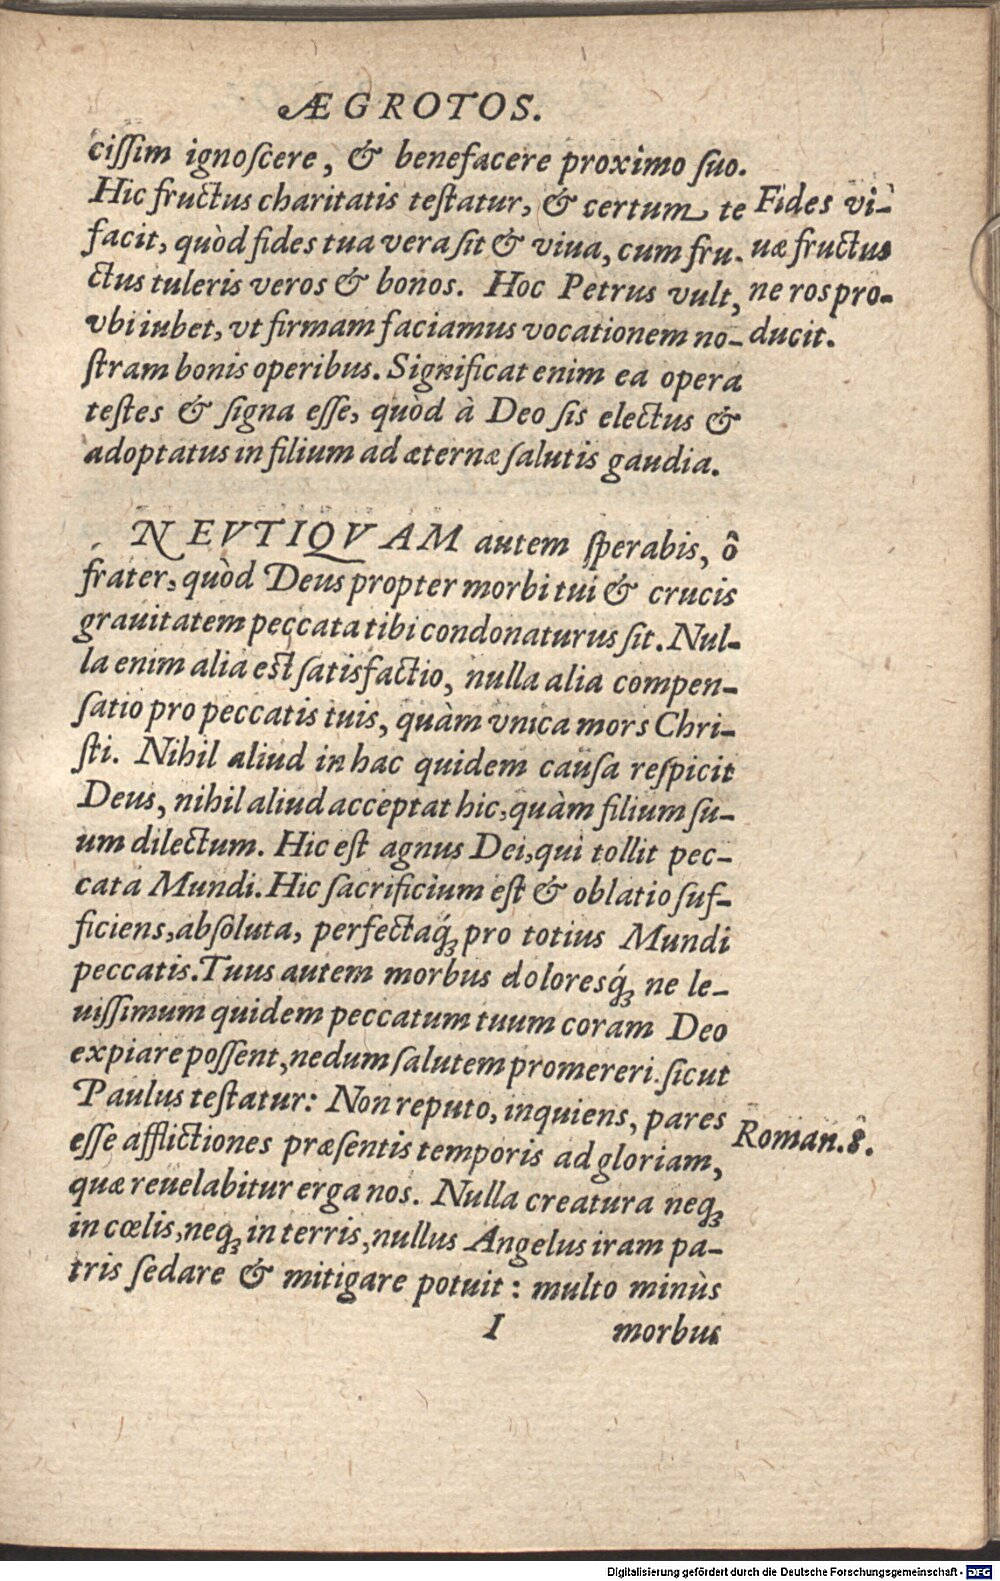 ÆGROTOS.
ciſſim ignoſcere, & benefacere proximo ſuo.
Hic fructus charitatis teſtatur, & certum te
facit, quòd fides tua vera ſit & viua, cum fru-
ctus tuleris veros & bonos. Hoc Petrus vult,
vbi iubet, vt firmam faciamus vocationem no-
ſtram bonis operibus. Significat enim ea opera
teſtes & ſigna eſſe, quòd à Deo ſis electus &
adoptatus in filium ad æternæ ſalutis gaudia.
Fides vi-
uæ fructus
ne ros pro-
ducit.
NEVTIQVAM autem ſperabis, ô
frater, quòd Deus propter morbi tui & crucis
grauitatem peccata tibi condonaturus ſit. Nul-
la enim alia eſt ſatisfactio, nulla alia compen-
ſatio pro peccatis tuis, quàm vnica mors Chri-
ſti. Nihil aliud in hac quidem cauſa reſpicit
Deus, nihil aliud acceptat hic, quàm filium ſu-
um dilectum. Hic eſt agnus Dei, qui tollit pec-
cata Mundi. Hic ſacrificium eſt & oblatio ſuf-
ficiens, abſoluta, perfectaq́; pro totius Mundi
peccatis. Tuus autem morbus doloresq́; ne le-
uiſſimum quidem peccatum tuum coram Deo
expiare poſſent, nedum ſalutem promereri. ſicut
Paulus teſtatur: Non reputo, inquiens, pares
eſſe afflictiones præſentis temporis ad gloriam,
quæ reuelabitur erga nos. Nulla creatura neq;
in cœlis, neq; in terris, nullus Angelus iram pa-
tris ſedare & mitigare potuit: multo minùs
Roman. 8.
I morbus
Digitalisierung gefördert durch die Deutsche Forschungsgemeinschaft - DFG